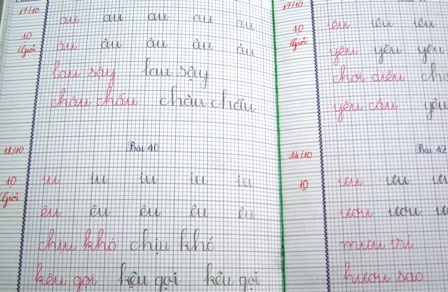 17/10 au au au au au
10 Giỏi âu âu âu âu âu
lau sậy lau sậy
châu chấu châu chấu
18/10 Bài 40
10 Giỏi iu iu iu iu iu
êu êu êu êu êu
chịu khó chịu khó
kêu gọi kêu gọi kêu gọi
17/10 iêu iêu iêu
10 Giỏi yêu yêu yêu
chơi diều
yêu cầu
24/10 Bài 42
10 ưu ưu ưu
ươu ươu
mưu trí
hươu sao